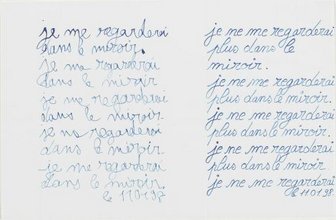 je me regarderai
dans le miroir.
je me regarderai
dans le miroir
je me regarderai
dans le miroir
je me regarderai
dans le miroir
je me regarderai
dans le miroir
le 11 01 98
je ne me regarderai
plus dans le
miroir.
je ne me regarderai
plus dans le miroir
je ne me regarderai
plus dans le miroir.
je ne me regarderai
plus dans le miroir
je ne me regarderai
le 11 01 98.